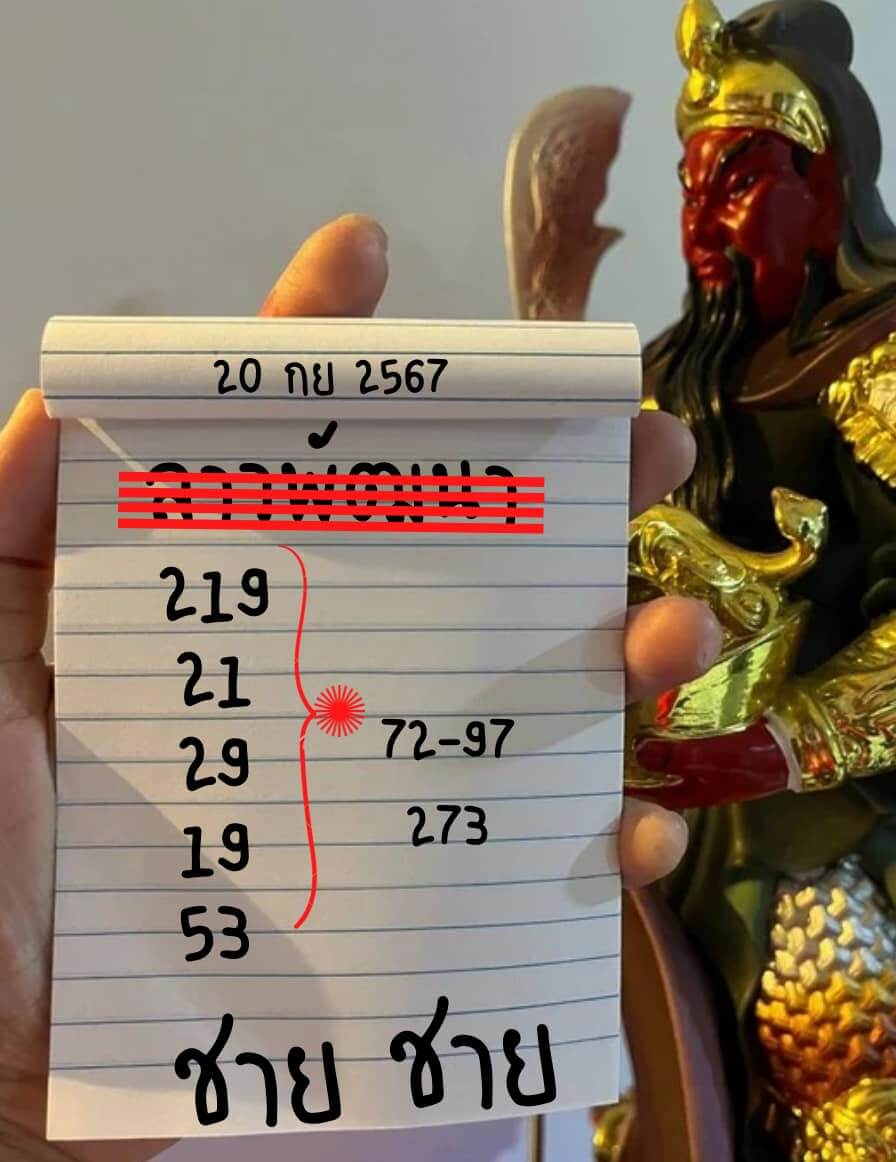 20 กย 2567
ลาวพัฒนา
219
21
29
19
53
72-97
273
ชาย ชาย